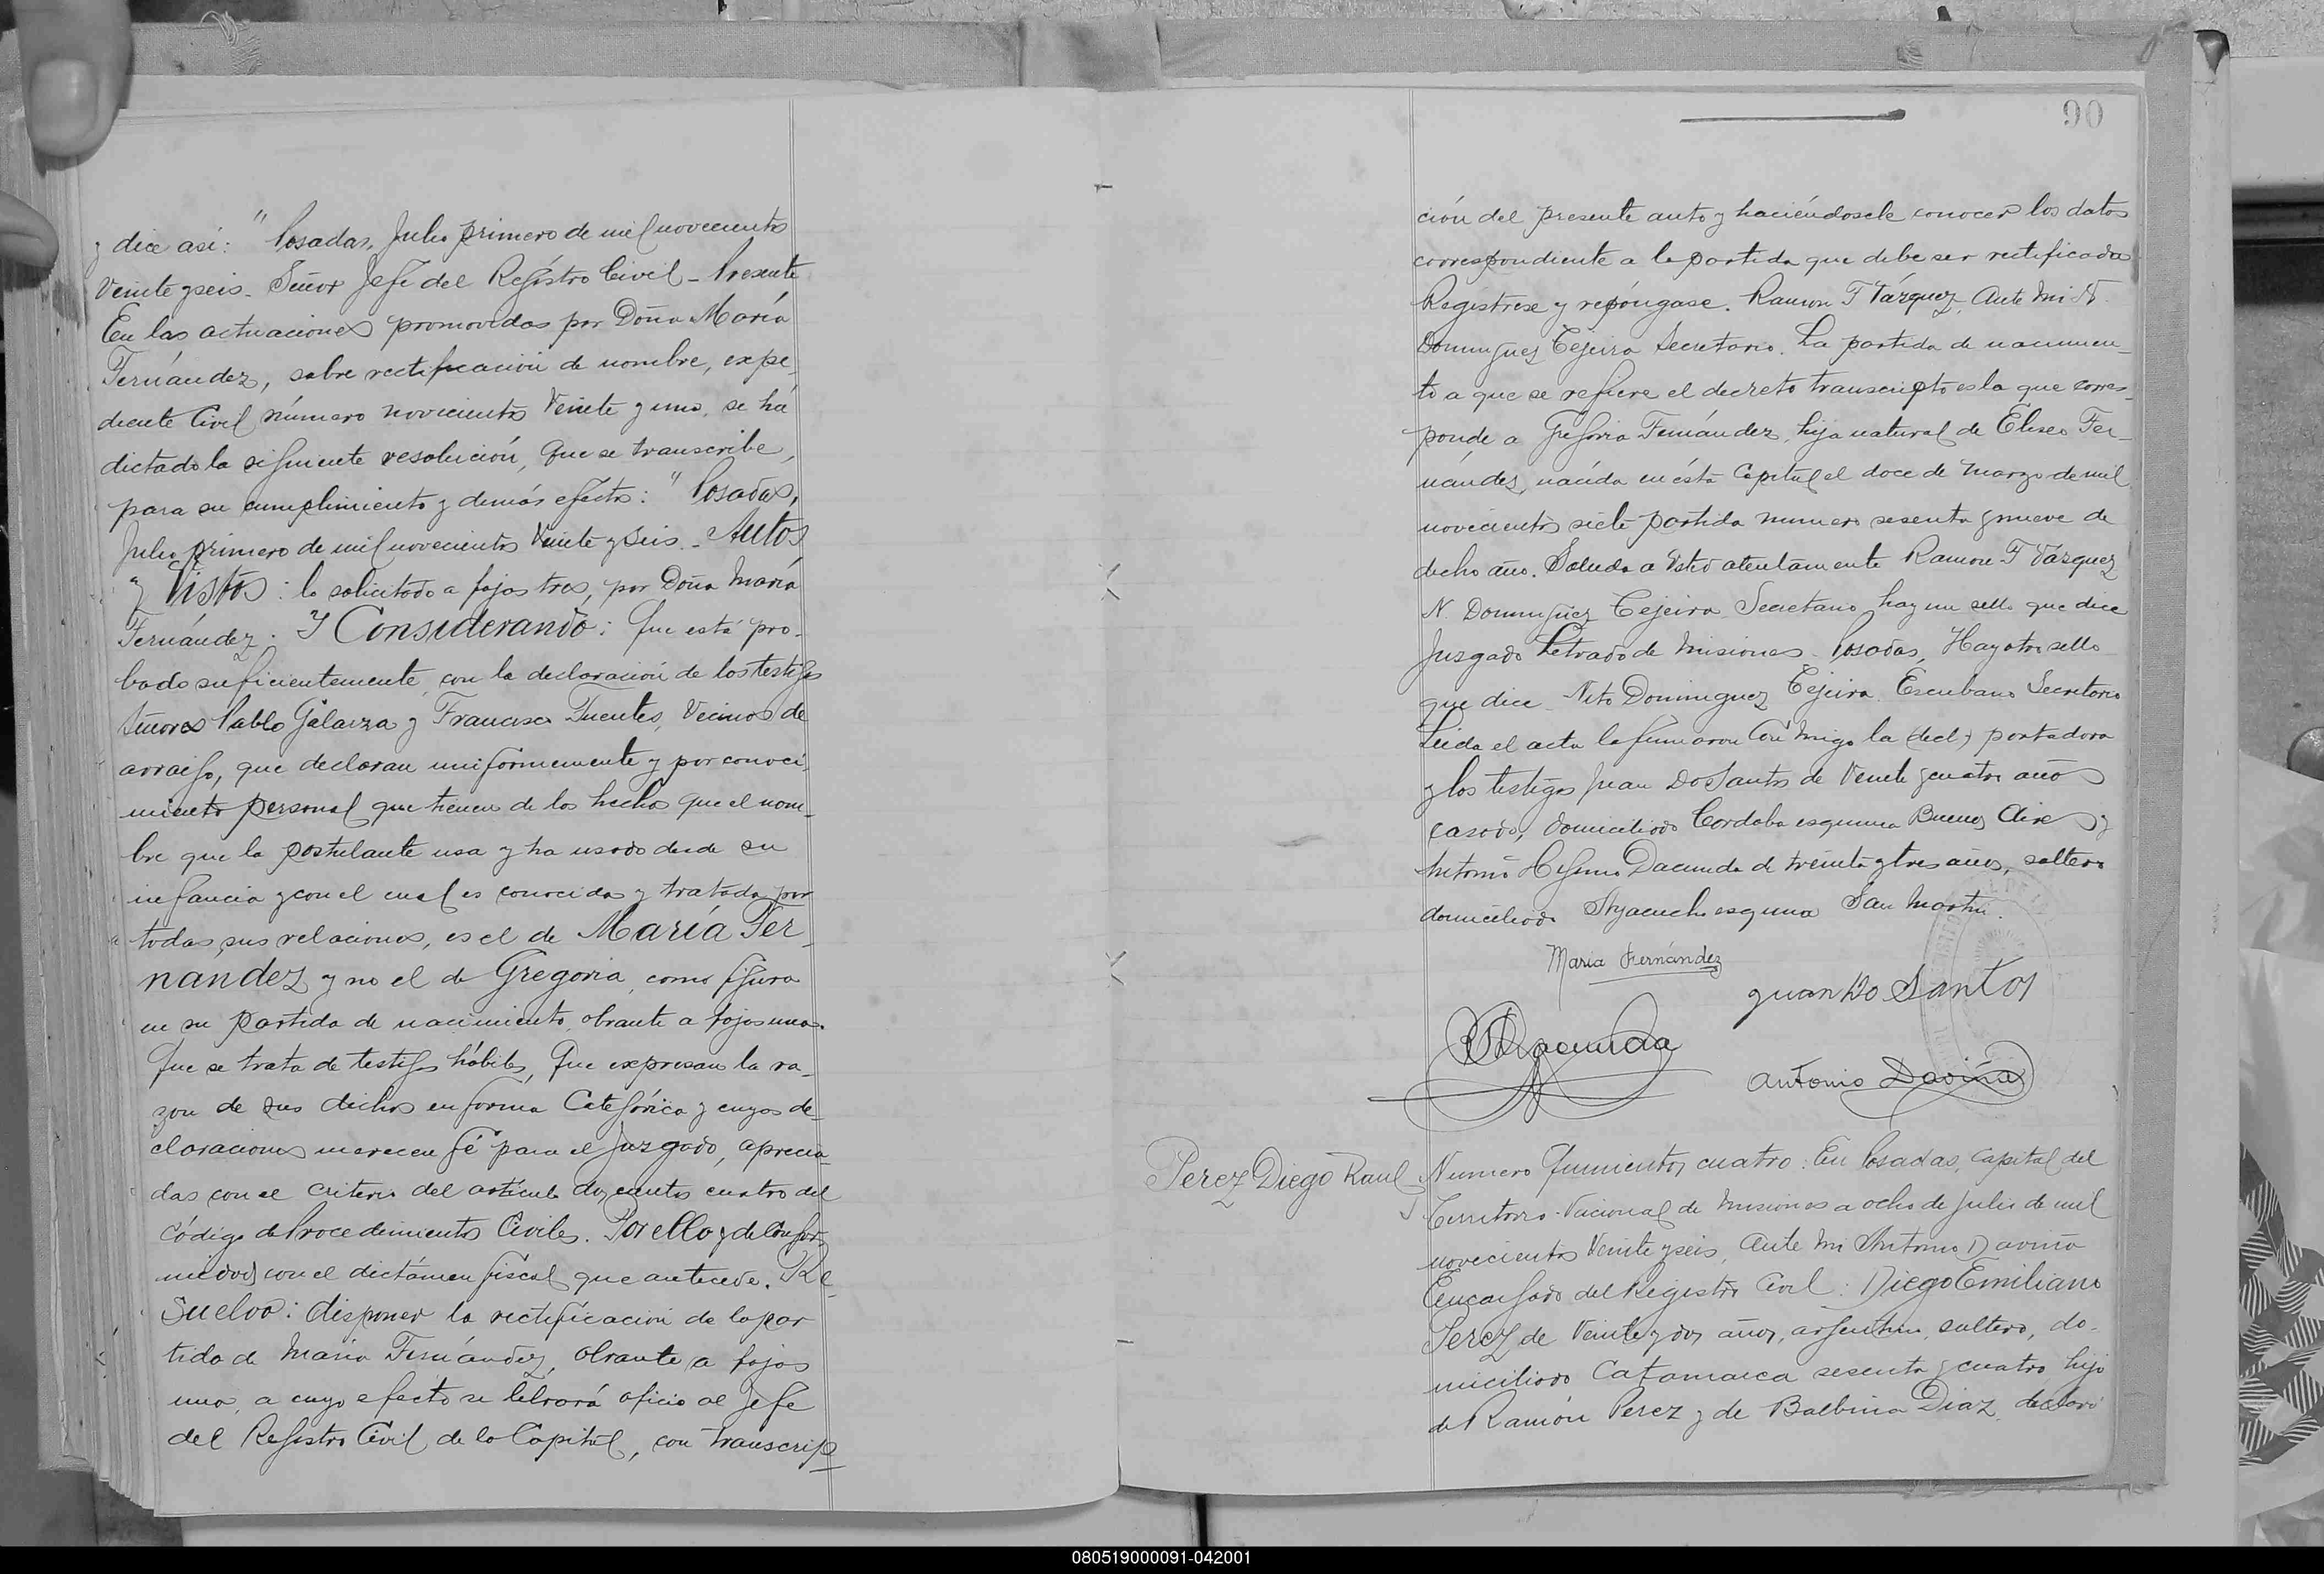 y dice así: " Posadas, Julio primero de mil novecientos
Veinte y seis. Señor Jefe del Registro Civil - Presente
En las actuaciones promovidas por Doña María
Fernández, sobre rectificación de nombre, expe-
diente Civil número novecientos Veinte y uno, se há
dictado la siguiente resolución, que se transcribe,
para su cumplimiento y demás efectos: " Posadas,
Julio primero de mil novecientos Veinte y seis. - Autos
y Vistos: lo solicitado a fojas tres, por Doña María
Fernández. Y Considerando: Que está pro-
bado suficientemente, con la declaración de los testigos
Señores Pablo Galarza y Francisco Fuentes, Vecinos de
arraigo, que declaran uniformemente y por conoci-
miento personal que tienen de los hechos que el nom-
bre que la postulante usa y ha usado desde su
infancia y con el cual es conocida y tratada por
todas sus relaciones, es el de María Fer-
nandez y no el de Gregoria, como figura
en su partida de nacimiento, obrante a fojas una.
Que se trata de testigos hábiles, Que expresan la ra-
zon de sus dichos en forma Categórica y cuyos de-
claraciones merecen fé para el Juzgado, aprecia-
das con el criterio del artículo doscientos cuatro del
Código de Procedimientos Civiles. Por ello y de Confor-
midad con el dictámen fiscal que antecede. Re-
Suelvo: disponer la rectificación de la par
tida de María Fernández, obrante a fojas
una, a cuyo efecto se librará oficio al Jefe
del Registro Civil de la Capital, con transcrip
90
ción del presente auto y haciéndosele conocer los datos
correspondiente a la partida que debe ser rectificada
Regístrese y repóngase. Ramon F Vázquez. Ante Mi N.
Dominguez Tejeira Secretario. La partida de nacimien-
to a que se refiere el decreto transcripto es la que corres-
ponde a Gregoria Fernández, hija natural de Eliseo Fer-
nández, nacida en ésta Capital el doce de Marzo de mil
novecientos siete partida numero sesenta y nueve de
dicho año. Saluda a Usted atentamente Ramon F Vázquez
N. Dominguez Tejeira Secretario, hay un sello que dice
Juzgado Letrado de Misiones - Posadas, Hay otro sello
que dice Dominguez Tejeira. Escribano Secretario
Leida el acta la firmaron Con migo la (decl.) portadora
y los testigos Juan Dos Santos de Veinte y cuatro años
casado, domiciliado Cordoba esquina Buenos Aires y
Antonio Higinio Dacunda de treinta y tres años, soltero
domiciliado Ayacucho esquina San Martin.
Maria Fernández
Juan Do Santos
Dacunda
Antonio Daviña
Perez Diego Raul
Numero Quinientos cuatro: En Posadas, Capital del
Territorio Nacional de Misiones a ocho de Julio de mil
novecientos Veinte y seis, Ante Mi Antonio Daviña
Encargado del Registro Civil: Diego Emiliano
Perez, de Veinte y dos años, argentino, soltero, do-
miciliado Catamarca sesenta y cuatro, hijo
de Ramón Perez y de Balbina Diaz, declaró
080519000091-042001